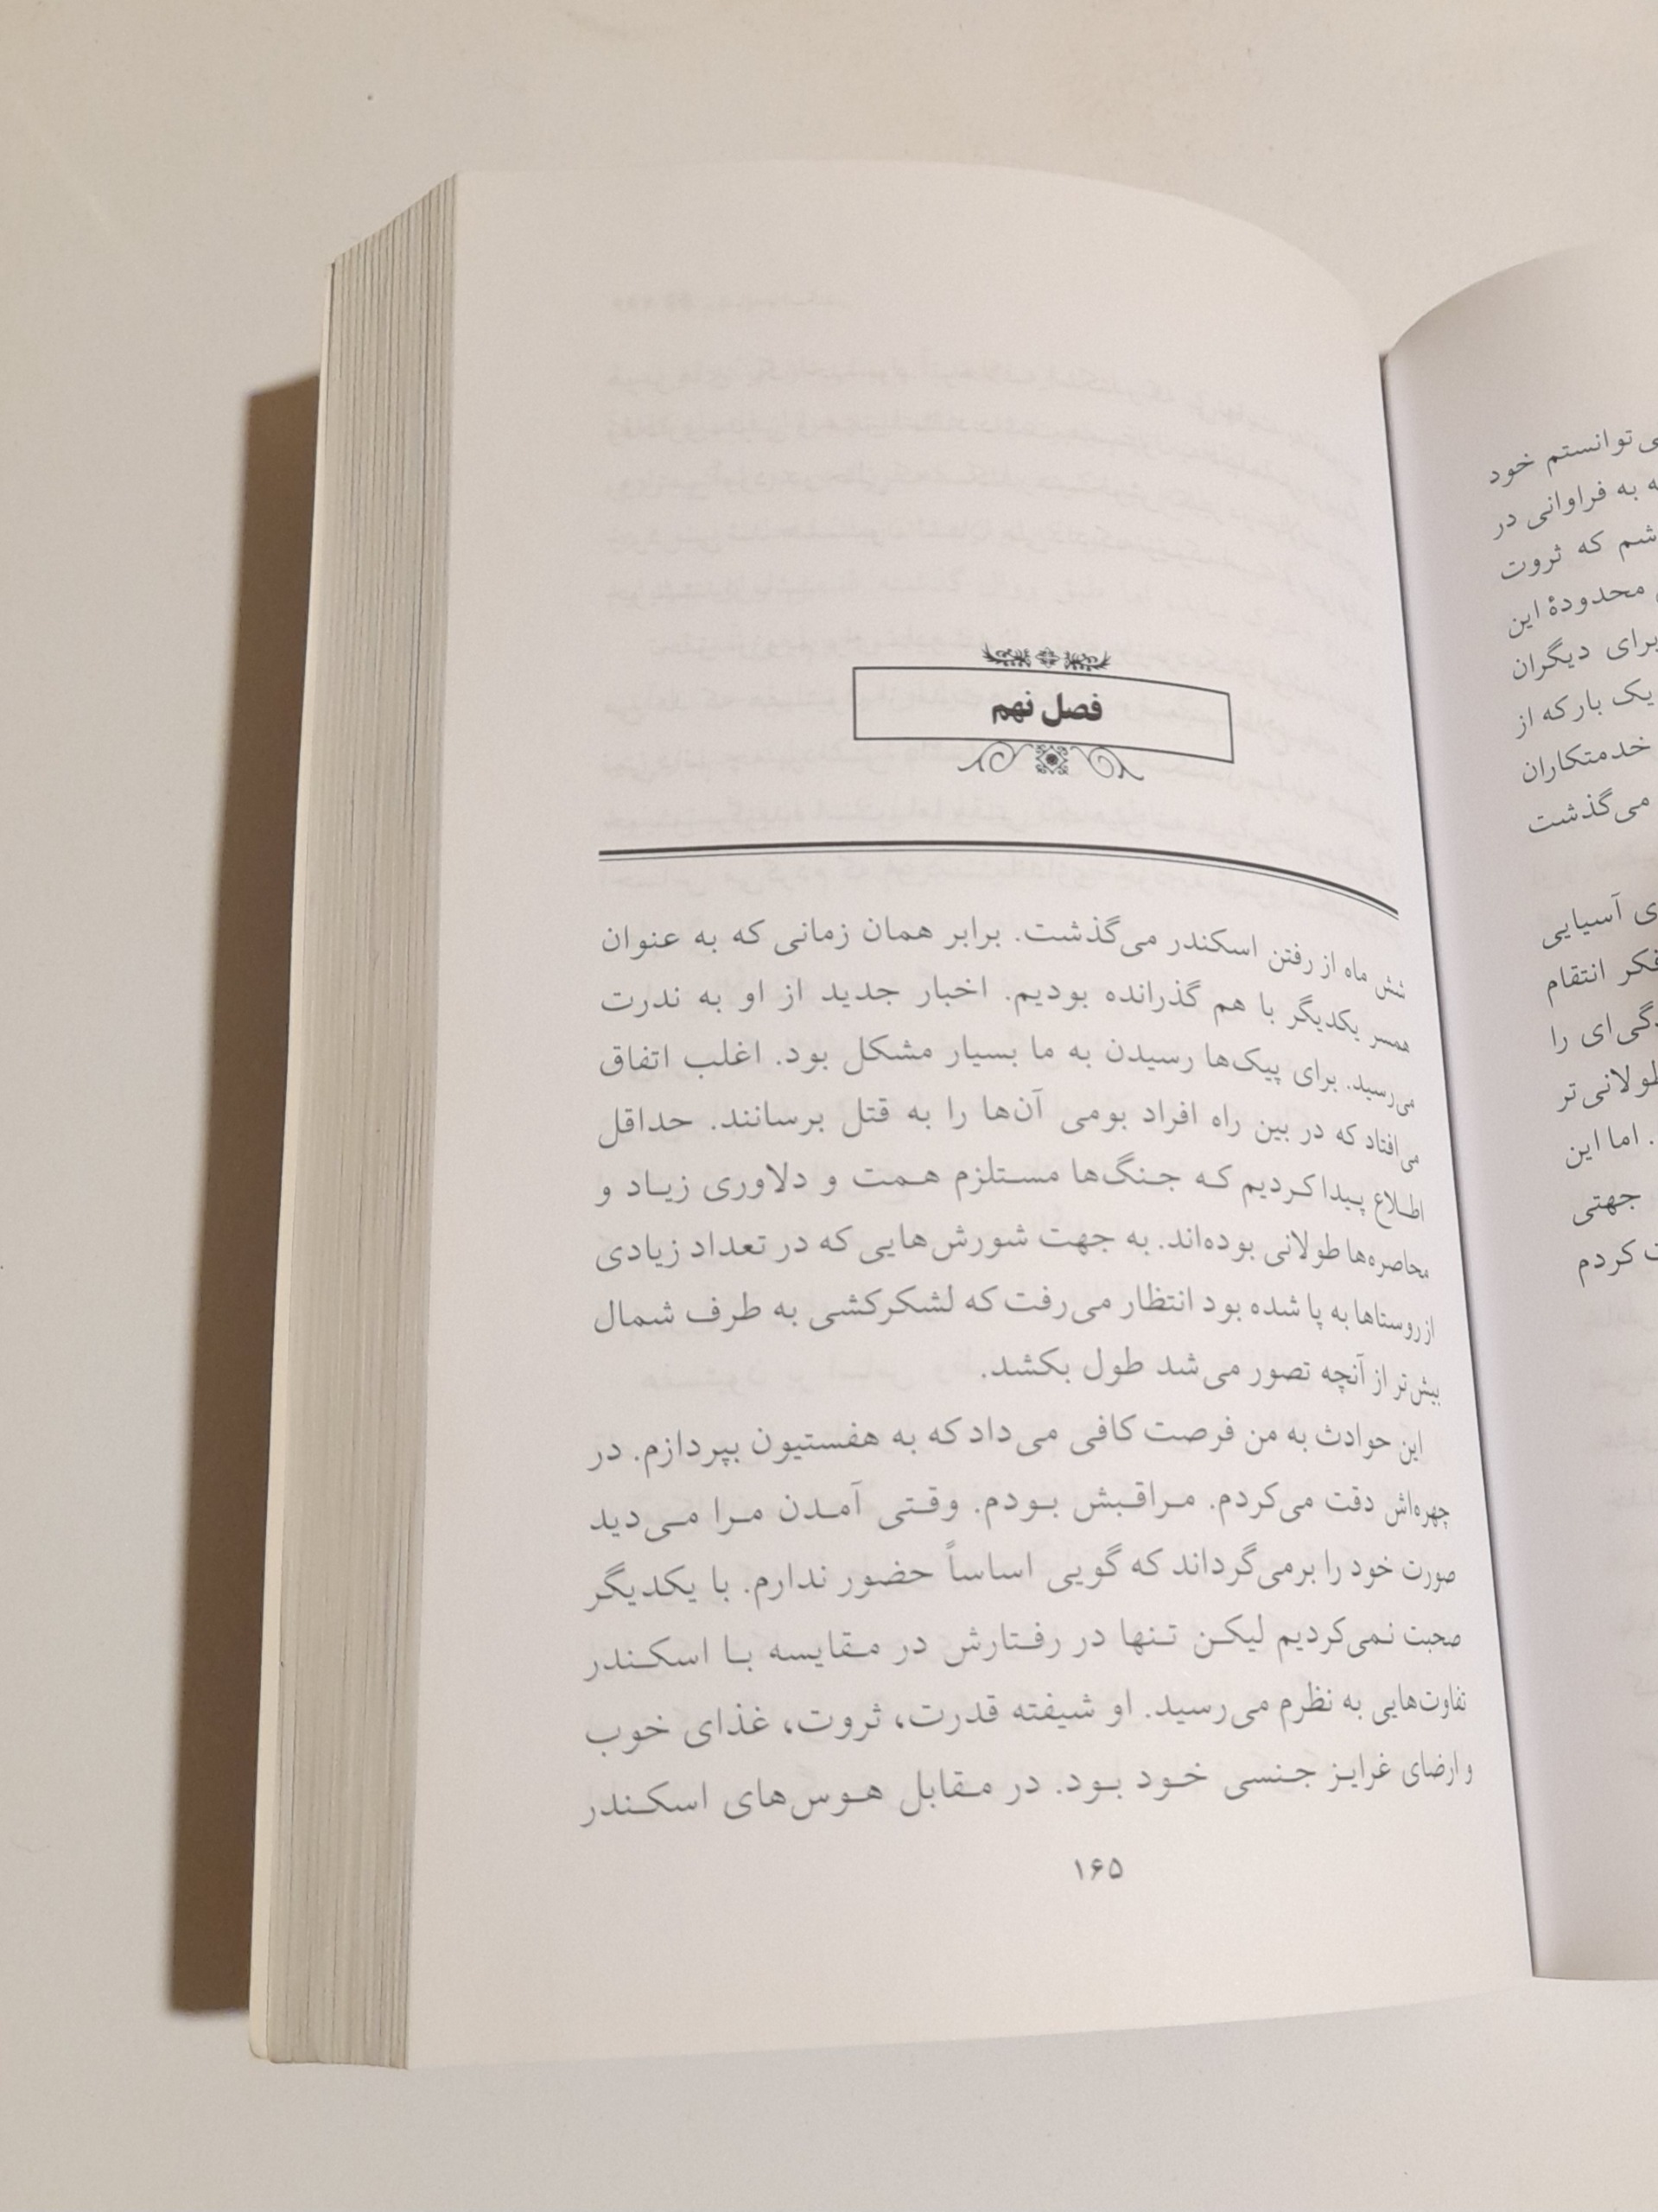 ی‌توانستم خود
ه به فراوانی در
شم که ثروت
محدودهٔ این
برای دیگران
یک بار که از
خدمتکاران
می‌گذشت
ی آسیایی
فکر انتقام
گی‌ای را
طولانی‌تر
. اما این
جهتی
ت کردم
فصل نهم
شش ماه از رفتن اسکندر می‌گذشت. برابر همان زمانی که به عنوان
همسر یکدیگر با هم گذرانده بودیم. اخبار جدید از او به ندرت
می‌رسید. برای پیک‌ها رسیدن به ما بسیار مشکل بود. اغلب اتفاق
می‌افتاد که در بین راه افراد بومی آن‌ها را به قتل برسانند. حداقل
اطلاع پیدا کردیم که جنگ‌ها مستلزم همت و دلاوری زیاد و
محاصره‌ها طولانی بوده‌اند. به جهت شورش‌هایی که در تعداد زیادی
از روستاها به پا شده بود انتظار می‌رفت که لشکرکشی به طرف شمال
بیش‌تر از آنچه تصور می‌شد طول بکشد.
این حوادث به من فرصت کافی می‌داد که به هفستیون بپردازم. در
چهره‌اش دقت می‌کردم. مراقبش بودم. وقتی آمدن مرا می‌دید
صورت خود را برمی‌گرداند که گویی اساساً حضور ندارم. با یکدیگر
صحبت نمی‌کردیم لیکن تنها در رفتارش در مقایسه با اسکندر
تفاوت‌هایی به نظرم می‌رسید. او شیفته قدرت، ثروت، غذای خوب
و ارضای غرایز جنسی خود بود. در مقابل هوس‌های اسکندر
۱۶۵